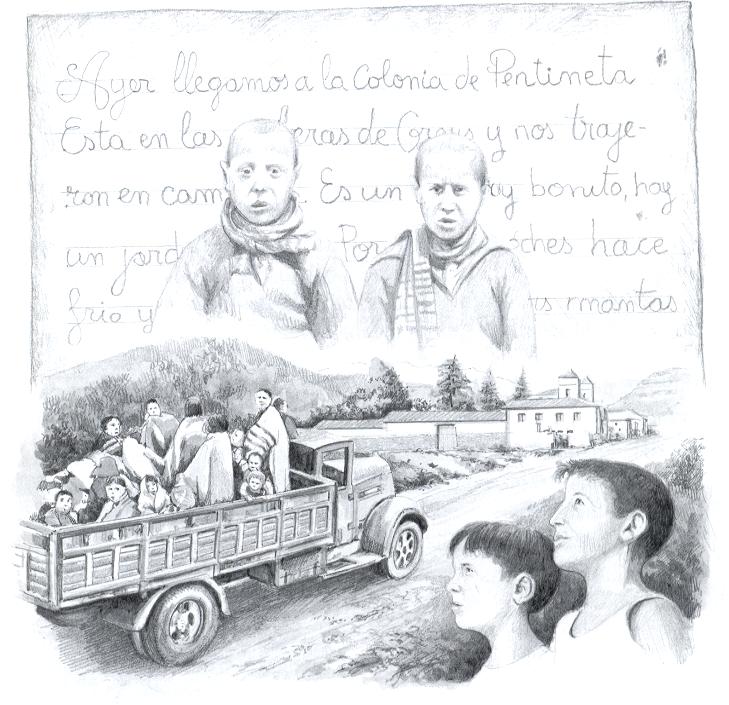 Ayer llegamos a la Colonia de Pentineta
Esta en las eras de Graus y nos traje-
ron en cam Es un ry bonito, hay
un jard Por ches hace
frio y rs mantas